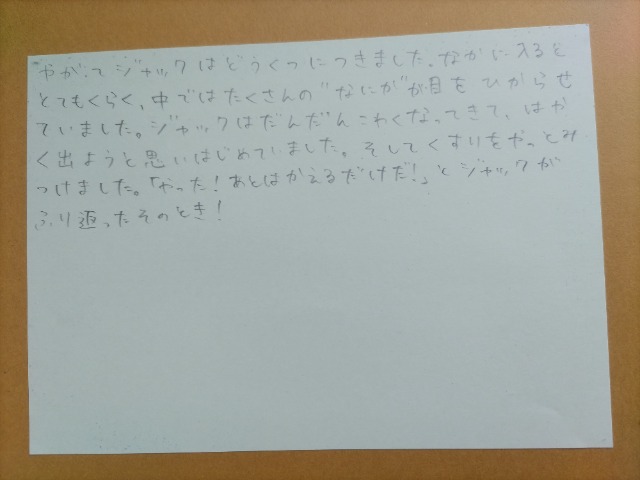 やがてジャックはどうくつにつきました。なかに入ると
とてもくらく、中ではたくさんの"なにか"が目をひからせ
ていました。ジャックはだんだんこわくなってきて、はや
く出ようと思いはじめていました。そしてくすりをやっとみ
つけました。「やった!あとはかえるだけだ!」とジャックが
ふり返ったそのとき!